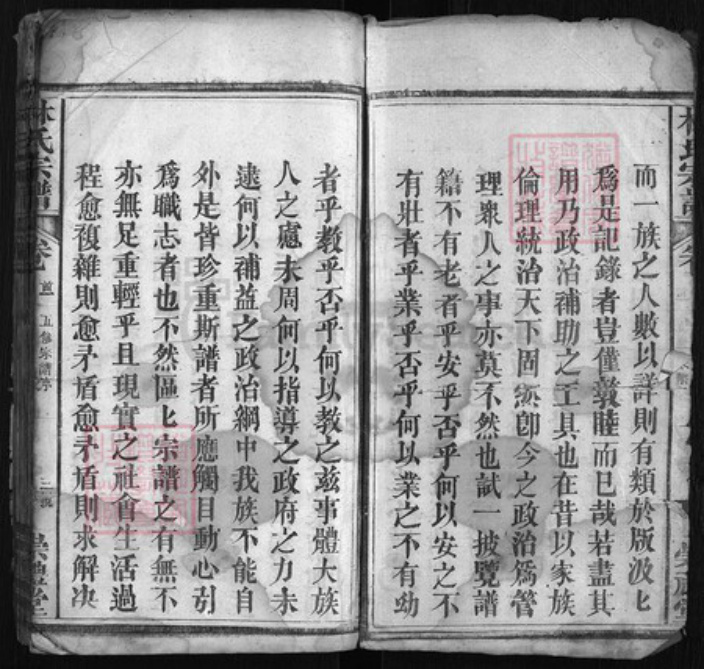 而一族之人數以詳則有類於版汲匕
爲是記錄者豈僅敦睦而已哉若盡其
用乃政治補助之工具也在昔以家族
倫理統治天下固然卽今之政治爲管
理衆人之事亦莫不然也試一披覽譜
籍不有老者乎安乎否乎何以安之不
有壯者乎業乎否乎何以業之不有幼
者乎教乎否乎何以教之茲事體大族
人之慮未周何以指導之政府之力未
逮何以補益之政治綱中我族不能自
外是皆珍重斯譜者所應觸目動心刻
爲職志者也不然區匕宗譜之有無不
亦無足重輕乎且現實之社會生活過
程愈複雜則愈矛盾愈矛盾則求解决
林氏宗譜
卷
首
五修宗譜序
三